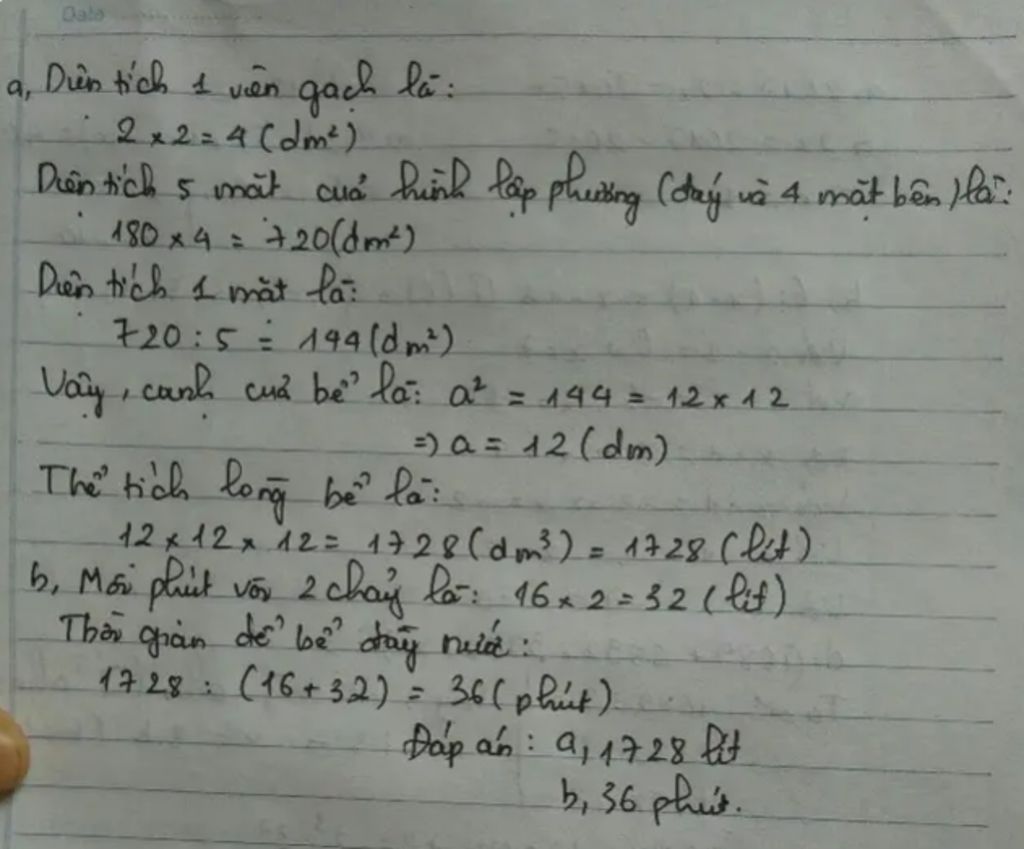 Date
a, Diện tích 1 viên gạch là:
2 x 2 = 4 (dm²)
Diện tích 5 mặt của hình lập phương (đáy và 4 mặt bên) là:
180 x 4 = 720 (dm²)
Diện tích 1 mặt là:
720 : 5 = 144 (dm²)
Vậy, cạnh của bể là: a² = 144 = 12 x 12
=> a = 12 (dm)
Thể tích lòng bể là:
12 x 12 x 12 = 1728 (dm³) = 1728 (lít)
b, Mỗi phút vòi 2 chảy là: 16 x 2 = 32 (lít)
Thời gian để bể đầy nước:
1728 : (16 + 32) = 36 (phút)
Đáp án: a, 1728 lít
b, 36 phút.